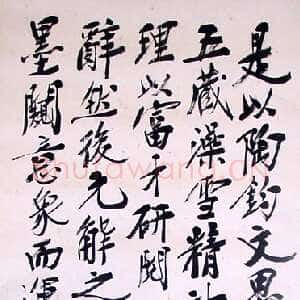 是以陶鈞文思
五藏澡雪精
理以富才研閱
辭然後元解之
墨闚意象而運